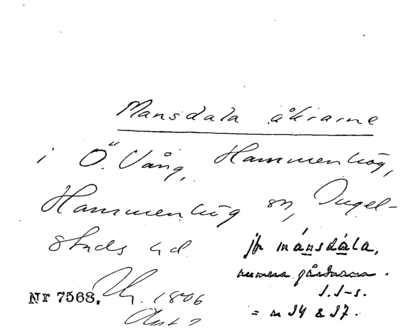 Mansdala åkrarne
i Ö. Vång, Hammenhög,
Hammenhög sn, Ingel-
stads hd.
jfr månsdála,
numera gårdarna.
s.1-s.
= n 34 & 37.
Nr 7568. 1806